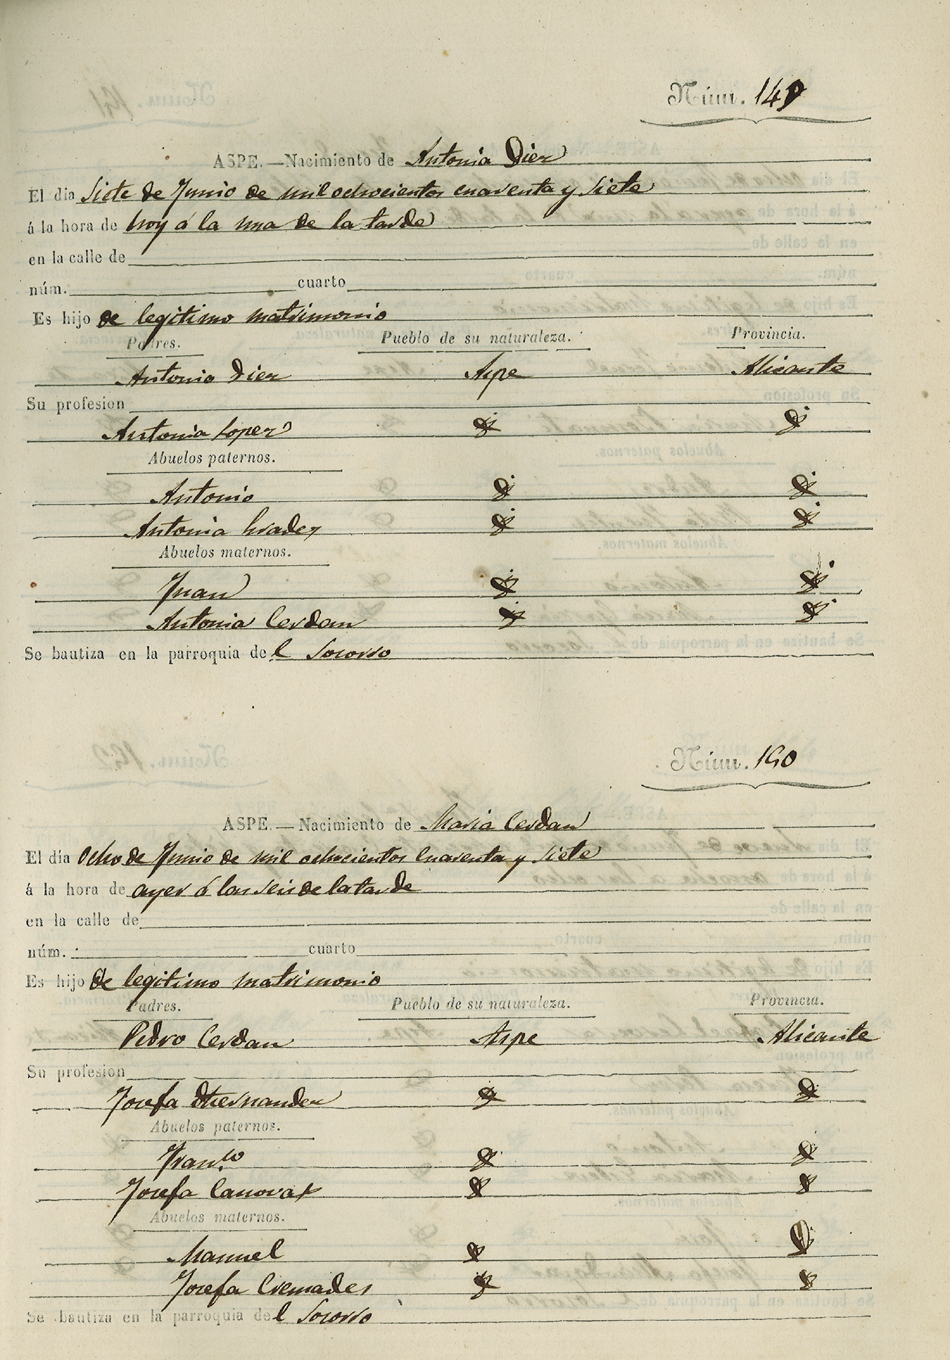 Núm. 149
ASPE.—Nacimiento de Antonia Dier
El dia Siete de Junio de mil ochocientos cuarenta y Siete
á la hora de hoy á la una de la tarde
en la calle de
núm. cuarto
Es hijo de legitimo matrimonio
Padres. Pueblo de su naturaleza. Provincia.
Antonio Dier Aspe Alicante
Su profesion
Antonia Lopez
Abuelos paternos.
Antonio
Antonia
Abuelos maternos.
Juan
Antonia Cerdan
Se bautiza en la parroquia del Socorro
Núm. 150
ASPE.—Nacimiento de Maria Cerdan
El día Ocho de Junio de mil ochocientos cuarenta y Siete
á la hora de ayer á las seis de la tarde
en la calle de
núm. cuarto
Es hijo de legitimo matrimonio
Padres. Pueblo de su naturaleza. Provincia.
Pedro Cerdan Aspe Alicante
Su profesion
Josefa Hernandez
Abuelos paternos.
Fran.co
Josefa Canovas
Abuelos maternos.
Manuel
Josefa Cremades
Se bautiza en la parroquia del Socorro